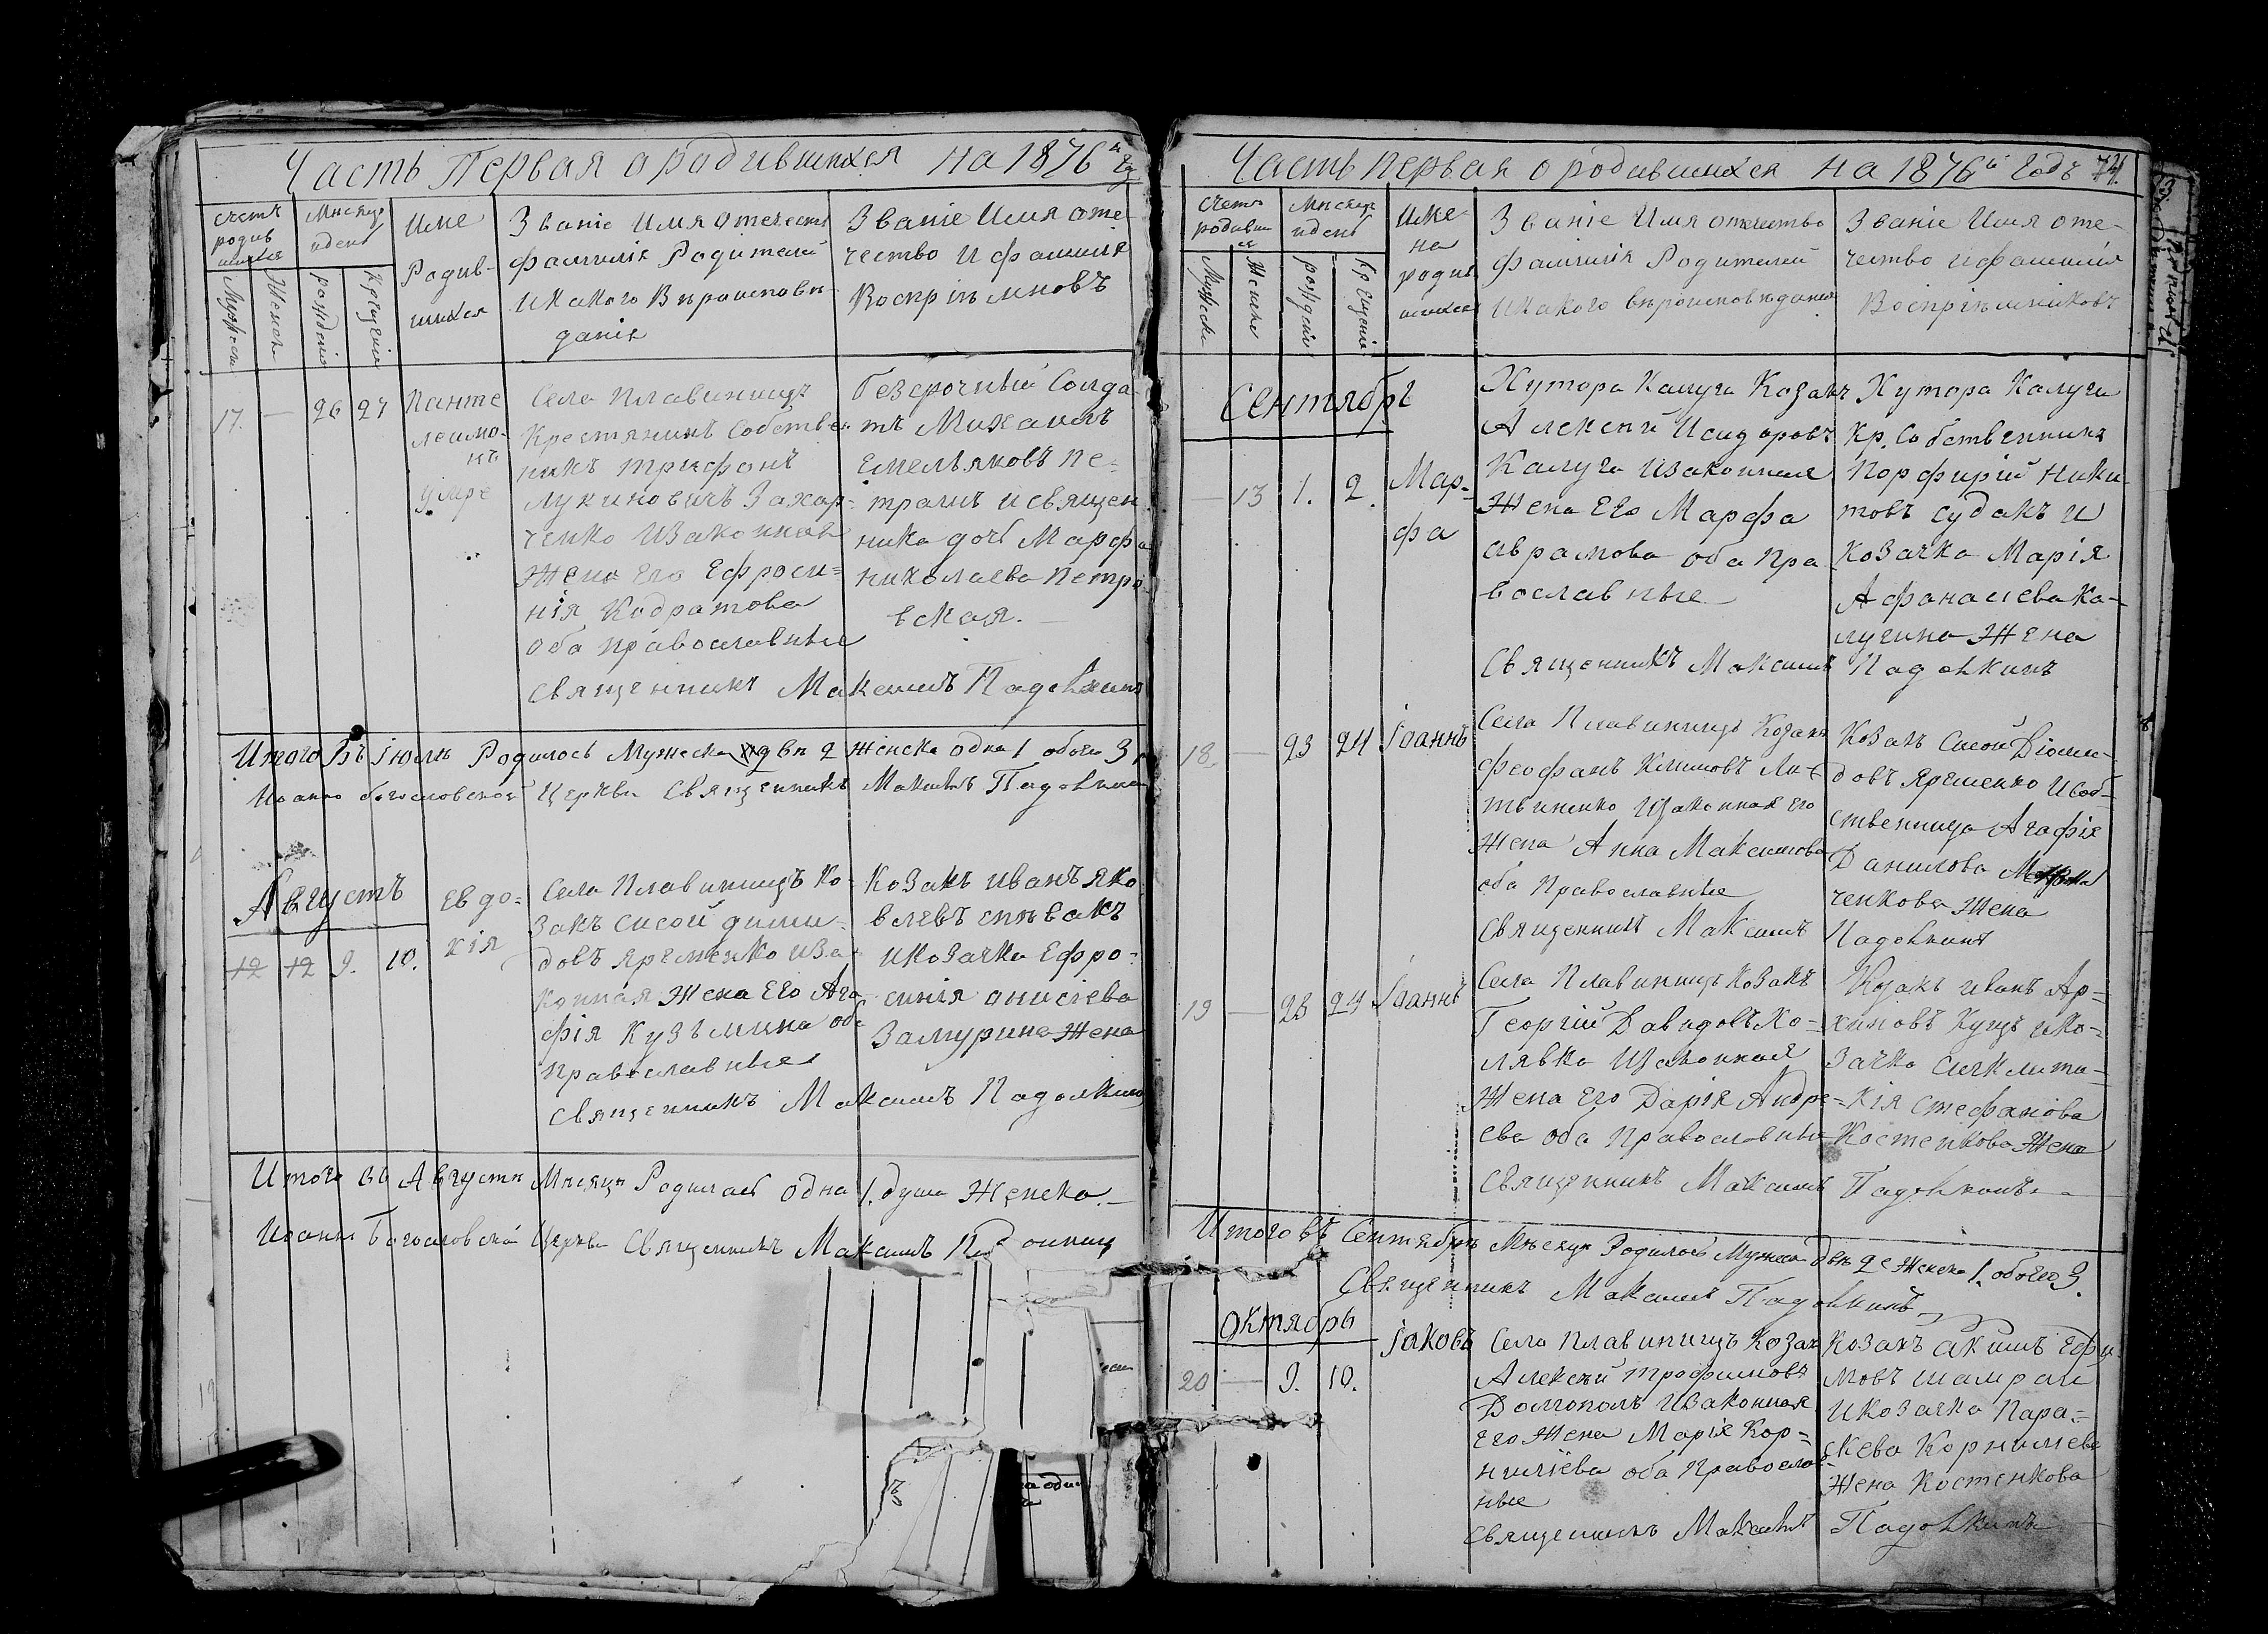 Часть Первая о родившихся на 1876й Г
счетъ родив шихся
Мужеска
Женска
Мѣсяцъ и день
рожденія
крещенія
Име
Родив-
шихся
Званіе Имя отечеств
Фамилія Родителей
и какого Вѣроисповѣ-
данія
Званіе Имя оте
чество и фамилія
Воспріемновъ
17. — 26 27
Панте
леимо-
нъ
умре
Села Плавинищъ
Крестянинъ собствен-
никъ Трифонъ
Лукиновичъ Захар-
ченко и законная
Жена Его Ефроси-
нія Кодратова
оба православные
безсрочный Солда
тъ Михаилъ
Емельяновъ Пе-
трашъ и священ
ника дочь Марфа
николаева Петро
вская. —
Священникъ Максимъ Падолкинъ
Итого Въ Іюлѣ Родилось Мужеска двѣ 2 женска одна 1 обоего 3
Иоанно богословской Церкви Священникъ Максимъ Падолкинъ
Августъ
12 12 9. 10.
Евдо-
кія
Села Плавинищъ Ко-
закъ Сисой диоми-
довъ Яременко и за-
конная Жена Его Ага
фія Кузьмина оба
православные
Козакъ Иванъ Яко
влевъ спѣвакъ
и козачка Ефро-
синія онисіева
Замурина Жена
Священникъ Максимъ Падолкинъ
Итого въ Августѣ Мѣсяцѣ Родилась одна 1. душа Женска. —
Иоанно Богословской Церкви Священникъ Максимъ
Часть первая о родившихся на 1876й Годъ 74.
Счетъ родивших ся
Мужеска
Женска
Мѣсяцъ и день
рожденія
Крещенія
Име-
на
родив
шихся
Званіе Имя отчество
Фамилія Родителей
И какого вѣроисповѣданія
Званіе Имя оте-
чество и фамилія
Воспріемниковъ
Сентябрь
— 13 1. 2.
Мар-
фа
Хутора Калуги Козакъ
Алексѣй Исидоровъ
Калуга и законная
Жена Его Марфа
аврамова оба Пра
вославные
Хутора Калуги
Кр. Собственникъ
Порфирій Ники-
товъ Судакъ и
Козачка Марія
Афанасиева Ка-
лугина Жена
Священникъ Максимъ Падолкинъ
18. — 23 24 Іоаннъ
Села Плавинищъ Козакъ
Феофанъ Климовъ Ли-
твиненко и законная Его
Жена Анна Максимова
оба Православные
Козакъ Сисой Діоми-
довъ Яременко и соб-
ственница Агафія
Данилова
ченкова Жена
Священникъ Максимъ Падолкинъ
19 — 23 24 Іоаннъ
Села Плавинищъ Козакъ
Георгій Давидовъ Ко-
лявка и законная
Жена Его Дарія Андре-
ева оба Православные
Козакъ Иванъ Ар-
хиповъ Куцъ и ко-
зачка Сичклити-
кія Стефанова
Костенкова Жена
Священникъ Максимъ Падолкинъ
Итого въ Сентябрѣ Мѣсяцѣ Родилось Мужеска двѣ 2 е Женска 1. обоего 3.
Священникъ Максимъ Падолкинъ
Октябрь
20 — 9. 10.
Іаковъ
Села Плавинищъ Козакъ
Алексѣй Трофимовъ
Долгополъ и законная
его Жена Марія Кор-
ниліева оба Православ-
ные
Козакъ Акимъ Ефи-
мовъ Шамрай
и козачка Пара-
скева Корнилиева
Жена Костенкова
Священникъ Максимъ Падолкинъ